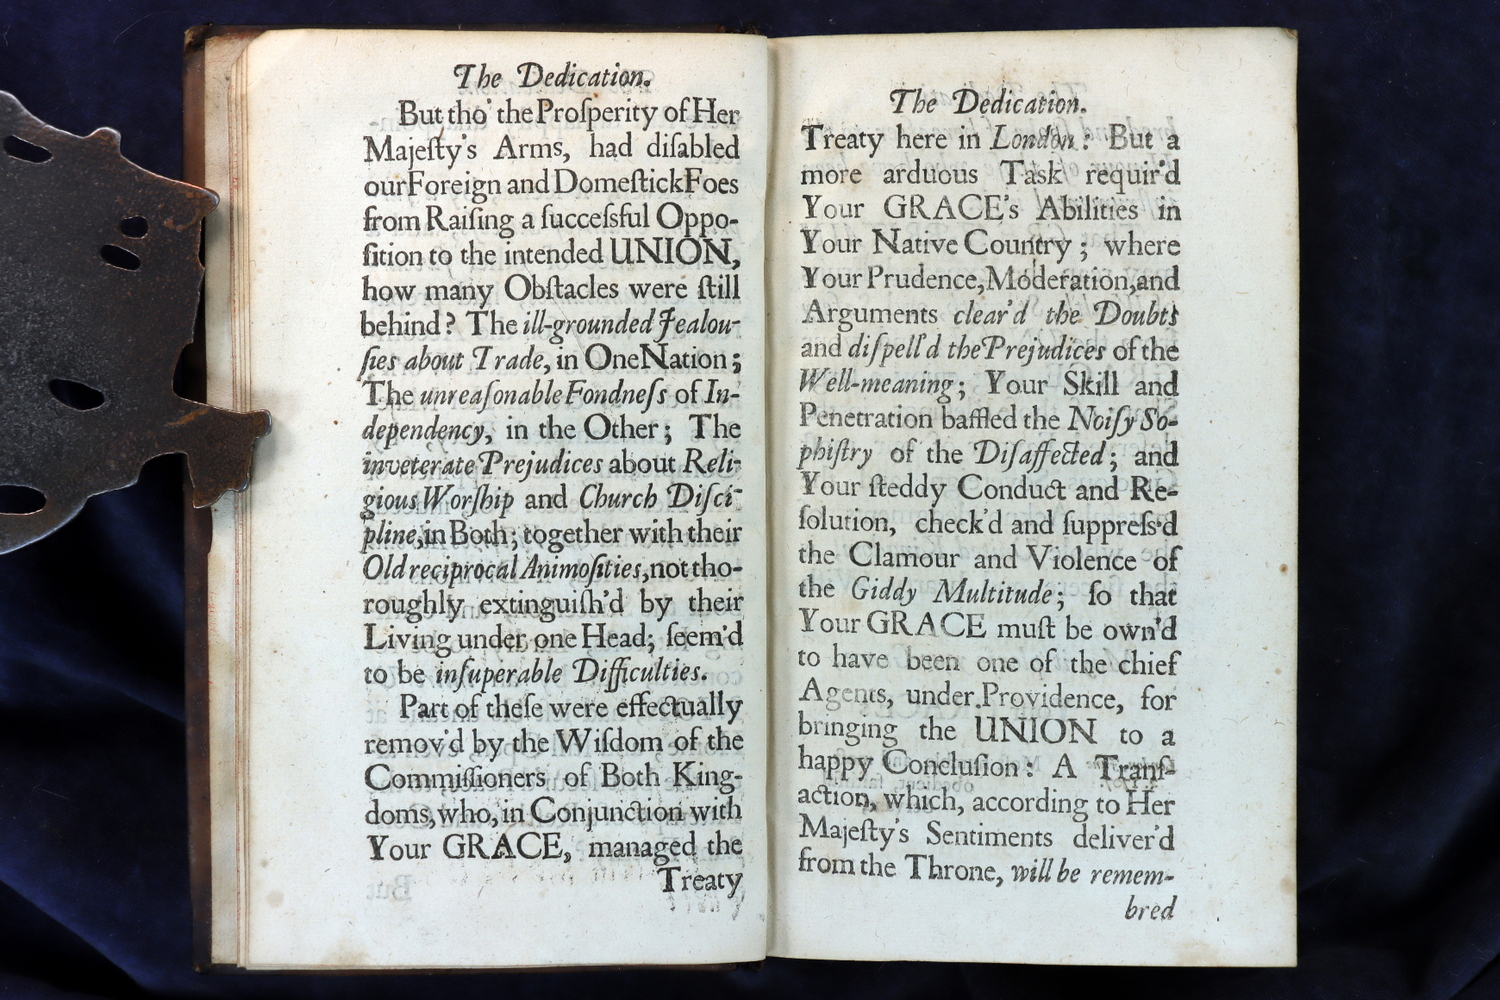 The Dedication.
But tho' the Proſperity of Her
Majeſty's Arms, had diſabled
our Foreign and Domeſtick Foes
from Raiſing a ſucceſsful Oppo-
ſition to the intended UNION,
how many Obſtacles were ſtill
behind? The ill-grounded Jealou-
ſies about Trade, in One Nation;
The unreaſonable Fondneſs of In-
dependency, in the Other; The
inveterate Prejudices about Reli-
gious Worſhip and Church Diſci-
pline, in Both; together with their
Old reciprocal Animoſities, not tho-
roughly extinguiſh'd by their
Living under one Head; ſeem'd
to be inſuperable Difficulties.
Part of theſe were effectually
remov'd by the Wiſdom of the
Commiſſioners of Both King-
doms, who, in Conjunction with
Your GRACE, managed the
Treaty
The Dedication.
Treaty here in London: But a
more arduous Task requir'd
Your GRACE's Abilities in
Your Native Country; where
Your Prudence, Moderation, and
Arguments clear'd the Doubts
and diſpell'd the Prejudices of the
Well-meaning; Your Skill and
Penetration baffled the Noiſy So-
phiſtry of the Diſaffected; and
Your ſteddy Conduct and Re-
ſolution, check'd and ſuppreſs'd
the Clamour and Violence of
the Giddy Multitude; ſo that
Your GRACE muſt be own'd
to have been one of the chief
Agents, under Providence, for
bringing the UNION to a
happy Concluſion: A Tranſ-
action, which, according to Her
Majeſty's Sentiments deliver'd
from the Throne, will be remem-
bred